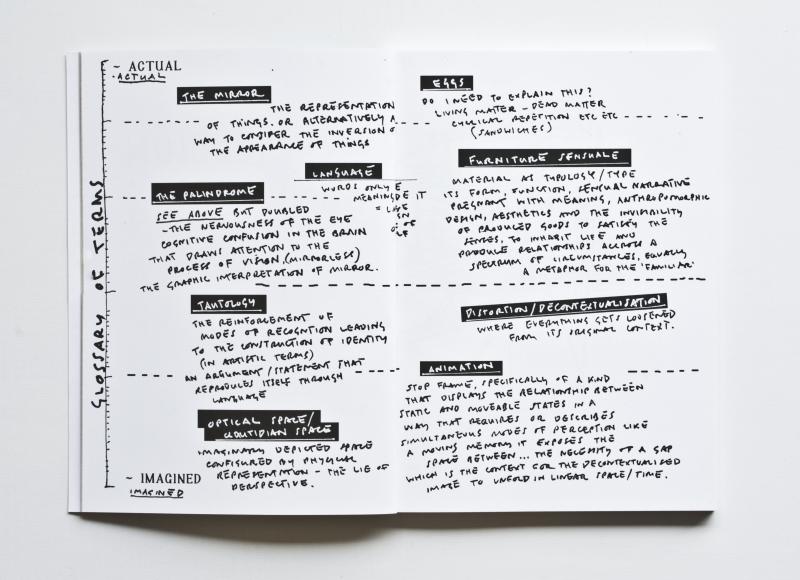 GLOSSARY OF TERMS
~ ACTUAL
· ACTUAL
THE MIRROR
THE REPRESENTATION
OF THINGS. OR ALTERNATIVELY A
WAY TO CONSIDER THE INVERSION O
THE APPEARANCE OF THINGS
LANGUAGE
WORDS ONLY
MEANING IT
THE PALINDROME
SEE ABOVE BUT DOUBLED
- THE NERVOUSNESS OF THE EYE
COGNITIVE CONFUSION IN THE BRAIN
THAT DRAWS ATTENTION TO THE
PROCESS OF VISION. (MIRRORLESS)
THE GRAPHIC INTERPRETATION OF MIRROR.
TAUTOLOGY
THE REINFORCEMENT OF
MODES OF RECOGNITION LEADING
TO THE CONSTRUCTION OF IDENTITY
(IN ARTISTIC TERMS)
AN ARGUMENT/STATEMENT THAT
REPRODUCES ITSELF THROUGH
LANGUAGE
OPTICAL SPACE/
QUOTIDIAN SPACE
IMAGINARY DEPICTED SPACE
CONFIGURED BY PHYSICAL
REPRESENTATION - THE LIE OF
PERSPECTIVE.
~ IMAGINED
IMAGINED
EGGS
DO I NEED TO EXPLAIN THIS?
LIVING MATTER - DEAD MATTER
CYCLICAL REPETITION ETC ETC
(SANDWICHES)
FURNITURE SENSUALE
MATERIAL AS TYPOLOGY/TYPE
ITS FORM, FUNCTION, SENSUAL NARRATIVE
PREGNANT WITH MEANING, ANTHROPOMORPHIC
DESIGN, AESTHETICS AND THE INVISIBILITY
OF PRODUCED GOODS TO SATISFY THE
SENSES, TO INHABIT LIFE AND
PRODUCE RELATIONSHIPS ACROSS A
SPECTRUM OF CIRCUMSTANCES, EQUALLY
A METAPHOR FOR THE 'FAMILIAR'
DISTORTION/DECONTEXTUALISATION
WHERE EVERYTHING GETS LOOSENED
FROM ITS ORIGINAL CONTEXT.
ANIMATION
STOP FRAME, SPECIFICALLY OF A KIND
THAT DISPLAYS THE RELATIONSHIP BETWEEN
STATIC AND MOVEABLE STATES IN A
WAY THAT REQUIRES OR DESCRIBES
SIMULTANEOUS MODES OF PERCEPTION LIKE
A MOVING MEMORY IT EXPOSES THE
SPACE BETWEEN... THE NECESSITY OF A GAP
WHICH IS THE CONTEXT FOR THE DECONTEXTUALISED
IMAGE TO UNFOLD IN LINEAR SPACE/TIME.